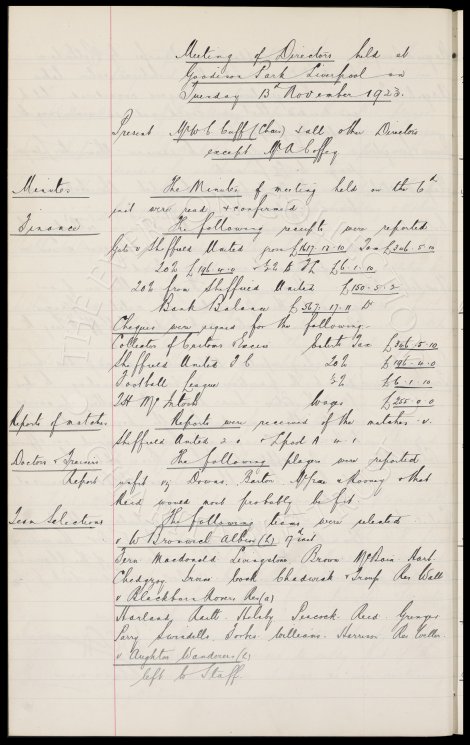 Meeting of Directors held at
Goodison Park Liverpool on
Tuesday 13th November 1923.
Present Mr W C Cuff (Chair) & all other Directors
except Mr A Coffey
Minutes The Minutes of meeting held on the 6th
inst were read & confirmed
Finance The following receipts were reported
Gate v Sheffield United gross £1617.13.10 Tax £346.5.10
20% £196.4.0 & ½% to FL £6.1.10
20% from Sheffield United £150.5.2
Bank Balance £567.17.11 Dr
Cheques were signed for the following:
Collector of Customs & Excise Entets Tax £346.5.10
Sheffield United F C 20% £196.4.0
Football League ½% £6.1.10
T H McIntosh Wages £255.0.0
Reports of matches Reports were received of the matches v.
Sheffield United 2.0 & Lpool A 4.1
Doctors & Trainers The following players were reported
Report unfit viz Downs, Barton, & Rooney & that
Reid would most probably be fit.
Team Selections The following teams were selected
v W Bromwich Albion (h) 17th inst
Fern Macdonald Livingstone, Brown McBain Hart
Chedgzoy Irvine Cock Chadwick & Troup Res Wall
v Blackburn Rovers Res (a)
Harland, Raitt. Helsby Peacock. Reid. Grenyer
Parry Swindells. Forbes Williams. Harrison Res Weller
v Aughton Wanderers (h)
left to Staff.